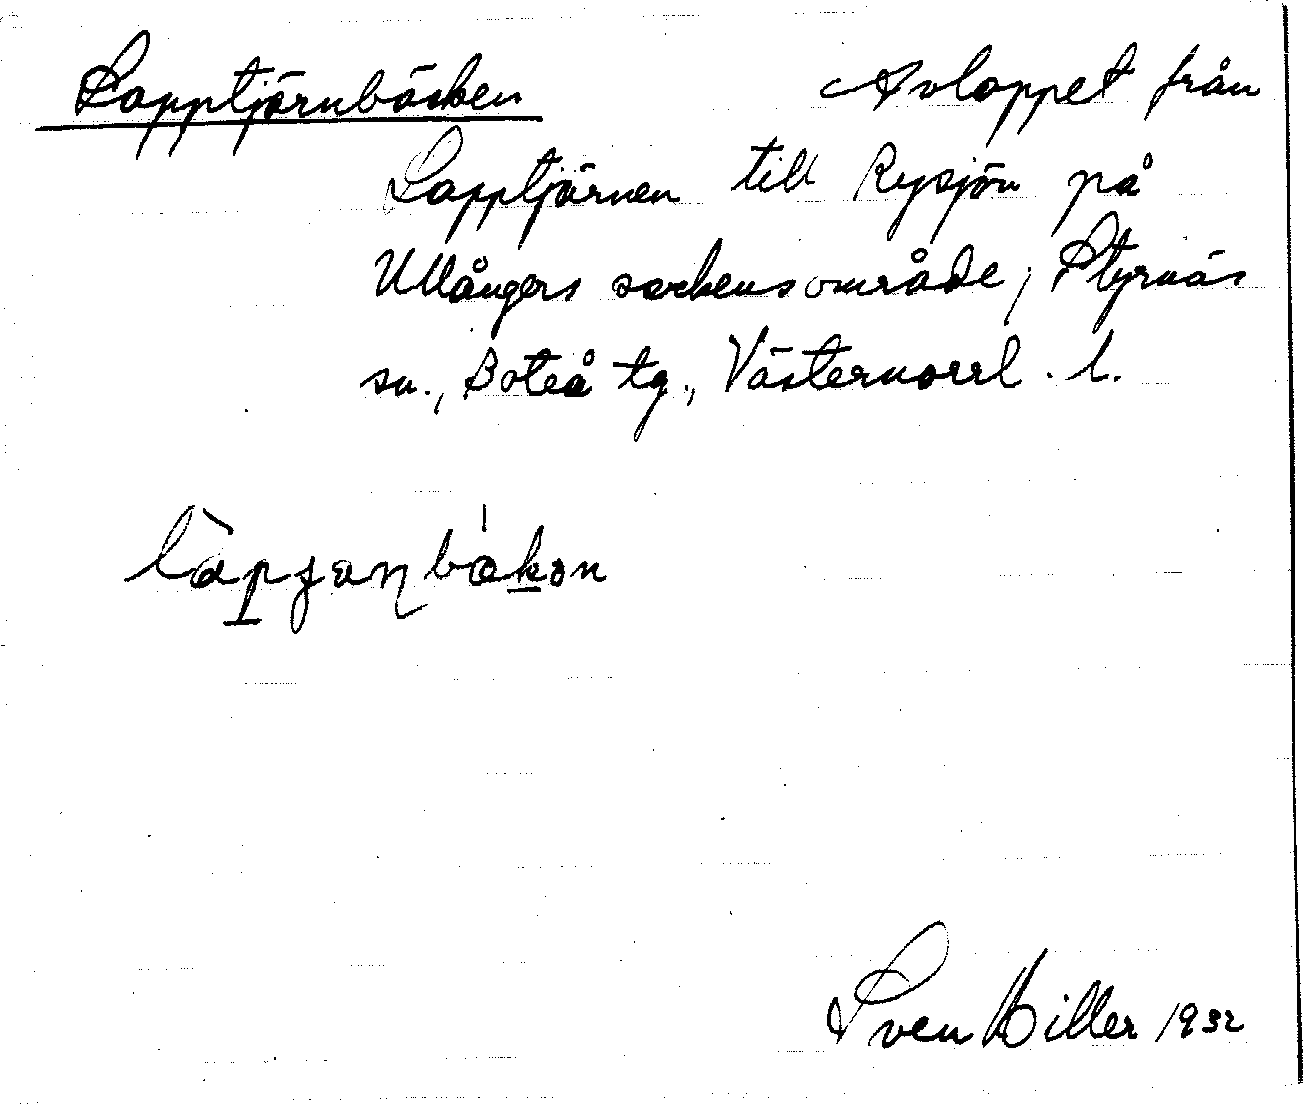 Lapptjärnbäcken Avloppet från
Lapptjärnen till Rysjön på
Ullångers sockensområde, Styrnäs
sn., Boteå tg., Västernorrl. l.
Sven Hiller 1932